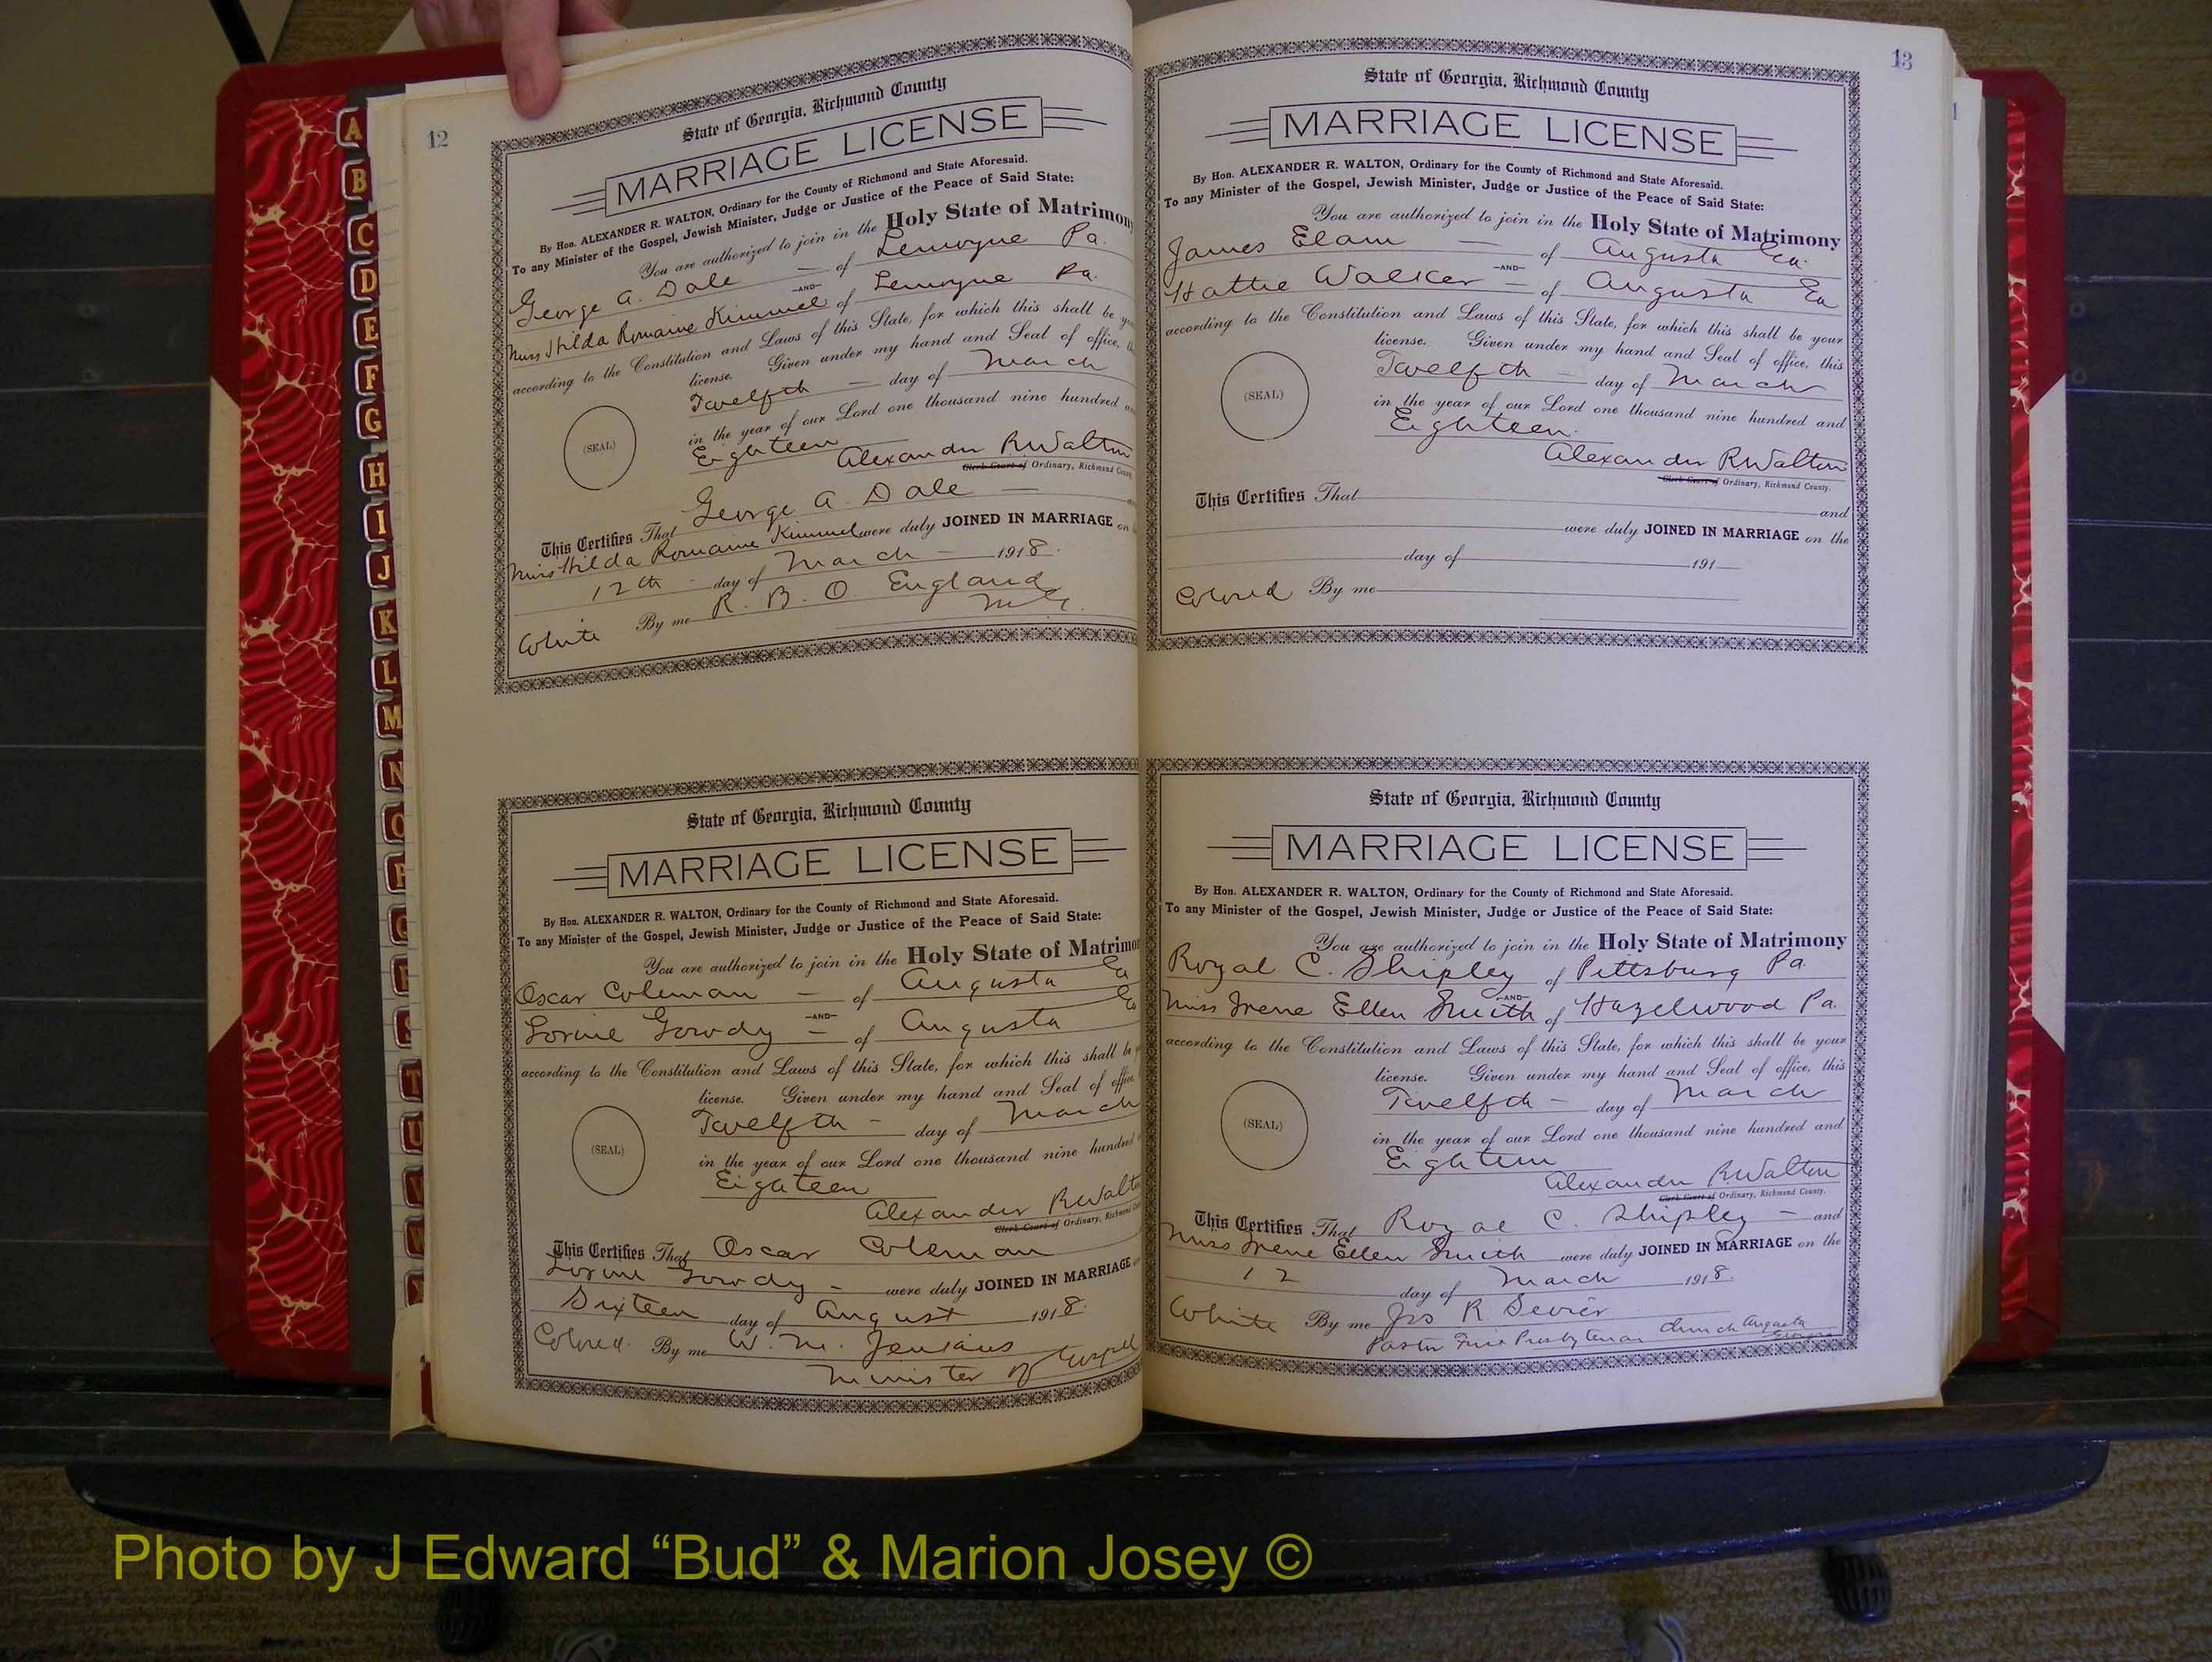 12
State of Georgia, Richmond County
MARRIAGE LICENSE
By Hon. ALEXANDER R. WALTON, Ordinary for the County of Richmond and State Aforesaid.
To any Minister of the Gospel, Jewish Minister, Judge or Justice of the Peace of Said State:
You are authorized to join in the Holy State of Matrimony
George A. Dale — of Lemoyne Pa.
—AND—
Miss Hilda Romaine Kimmel of Lemoyne Pa.
according to the Constitution and Laws of this State, for which this shall be
license. Given under my hand and Seal of office,
Twelfth — day of March
(SEAL)
in the year of our Lord one thousand nine hundred
Eighteen
Alexander R Walton
Clerk Court of Ordinary, Richmond
This Certifies That George A. Dale —
Miss Hilda Romaine Kimmel were duly JOINED IN MARRIAGE on
12th - day of March — 1918.
White By me R. B. O. England
State of Georgia, Richmond County
MARRIAGE LICENSE
By Hon. ALEXANDER R. WALTON, Ordinary for the County of Richmond and State Aforesaid.
To any Minister of the Gospel, Jewish Minister, Judge or Justice of the Peace of Said State:
You are authorized to join in the Holy State of
Oscar Coleman — of Augusta Ga
—AND—
Lorine Gowdy — of Augusta Ga
according to the Constitution and Laws of this State, for which this shall be
license. Given under my hand and Seal of office
Twelfth — day of March
(SEAL)
in the year of our Lord one thousand nine hundred
Eighteen
Alexander R Walton
Clerk Court of Ordinary, Richmond
This Certifies That Oscar Coleman
Lorine Gowdy — were duly JOINED IN MARRIAGE
Sixteen day of August 1918.
Colored. By me W. M. Jenkins
Minister of Gospel
13
State of Georgia, Richmond County
MARRIAGE LICENSE
By Hon. ALEXANDER R. WALTON, Ordinary for the County of Richmond and State Aforesaid.
To any Minister of the Gospel, Jewish Minister, Judge or Justice of the Peace of Said State:
You are authorized to join in the Holy State of Matrimony
James Elam — of Augusta Ga.
—AND—
Hattie Walker — of Augusta Ga
according to the Constitution and Laws of this State, for which this shall be your
license. Given under my hand and Seal of office, this
Twelfth — day of March
(SEAL)
in the year of our Lord one thousand nine hundred and
Eighteen.
Alexander R Walton
Clerk Court of Ordinary, Richmond County.
This Certifies That
and
were duly JOINED IN MARRIAGE on the
day of 191
Colored By me
State of Georgia, Richmond County
MARRIAGE LICENSE
By Hon. ALEXANDER R. WALTON, Ordinary for the County of Richmond and State Aforesaid.
To any Minister of the Gospel, Jewish Minister, Judge or Justice of the Peace of Said State:
You are authorized to join in the Holy State of Matrimony
Royal C. Shipley of Pittsburg Pa.
—AND—
Miss Irene Ellen Smith of Hazelwood Pa.
according to the Constitution and Laws of this State, for which this shall be your
license. Given under my hand and Seal of office, this
Twelfth — day of March
(SEAL)
in the year of our Lord one thousand nine hundred and
Eighteen
Alexander R Walton
Clerk Court of Ordinary, Richmond County.
This Certifies That Royal C. Shipley — and
Miss Irene Ellen Smith were duly JOINED IN MARRIAGE on the
12 day of March 1918.
White By me Jos R. Sevier
Pastor First Presbyterian Church Augusta
Georgia
A
B
C
D
E
F
G
H
I
J
K
L
M
N
O
P
Q
R
S
T
U
V
W
Photo by J Edward “Bud” & Marion Josey ©